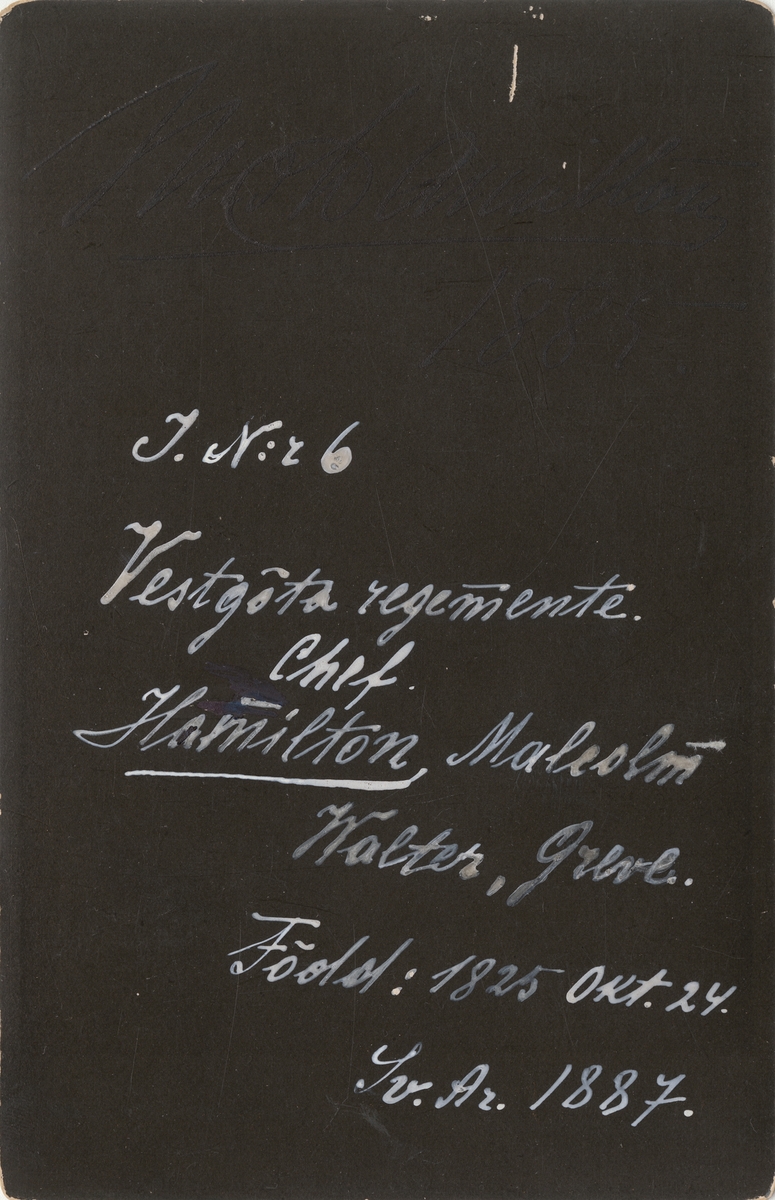 J. N:r 6
Vestgöta regemente.
Chef.
Hamilton, Malcolm
Walter, Greve.
Född: 1825 Okt. 24.
Sv. Ar. 1887.